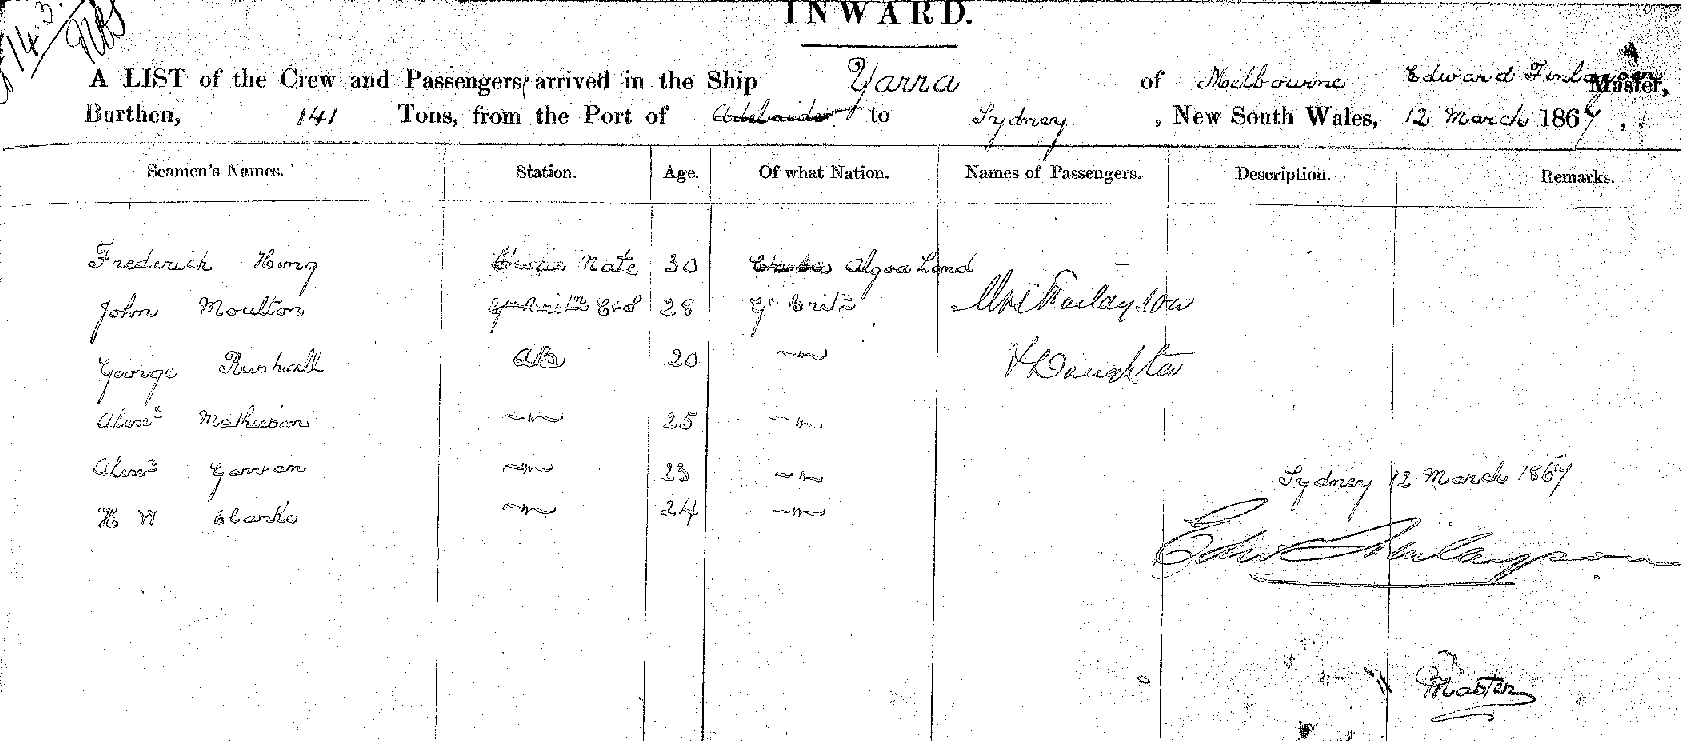 14.3.
INWARD.
A LIST of the Crew and Passengers arrived in the Ship Yarra of Melbourne Edward Finlayson Master,
Burthen, 141 Tons, from the Port of Adelaide to Sydney, New South Wales, 12 March 1867,
Seamen's Names. Station. Age. Of what Nation. Names of Passengers. Description. Remarks.
Frederick Mate 30 Algoa Land
John Moulton 28 Gt Brit Mrs Finlayson
George 20 " & Daughter
Alexr Mathieson " 25 "
Alexr " 23 "
Sydney 12 March 1867
H W Clarke " 24 "
Edwd Finlayson
Master